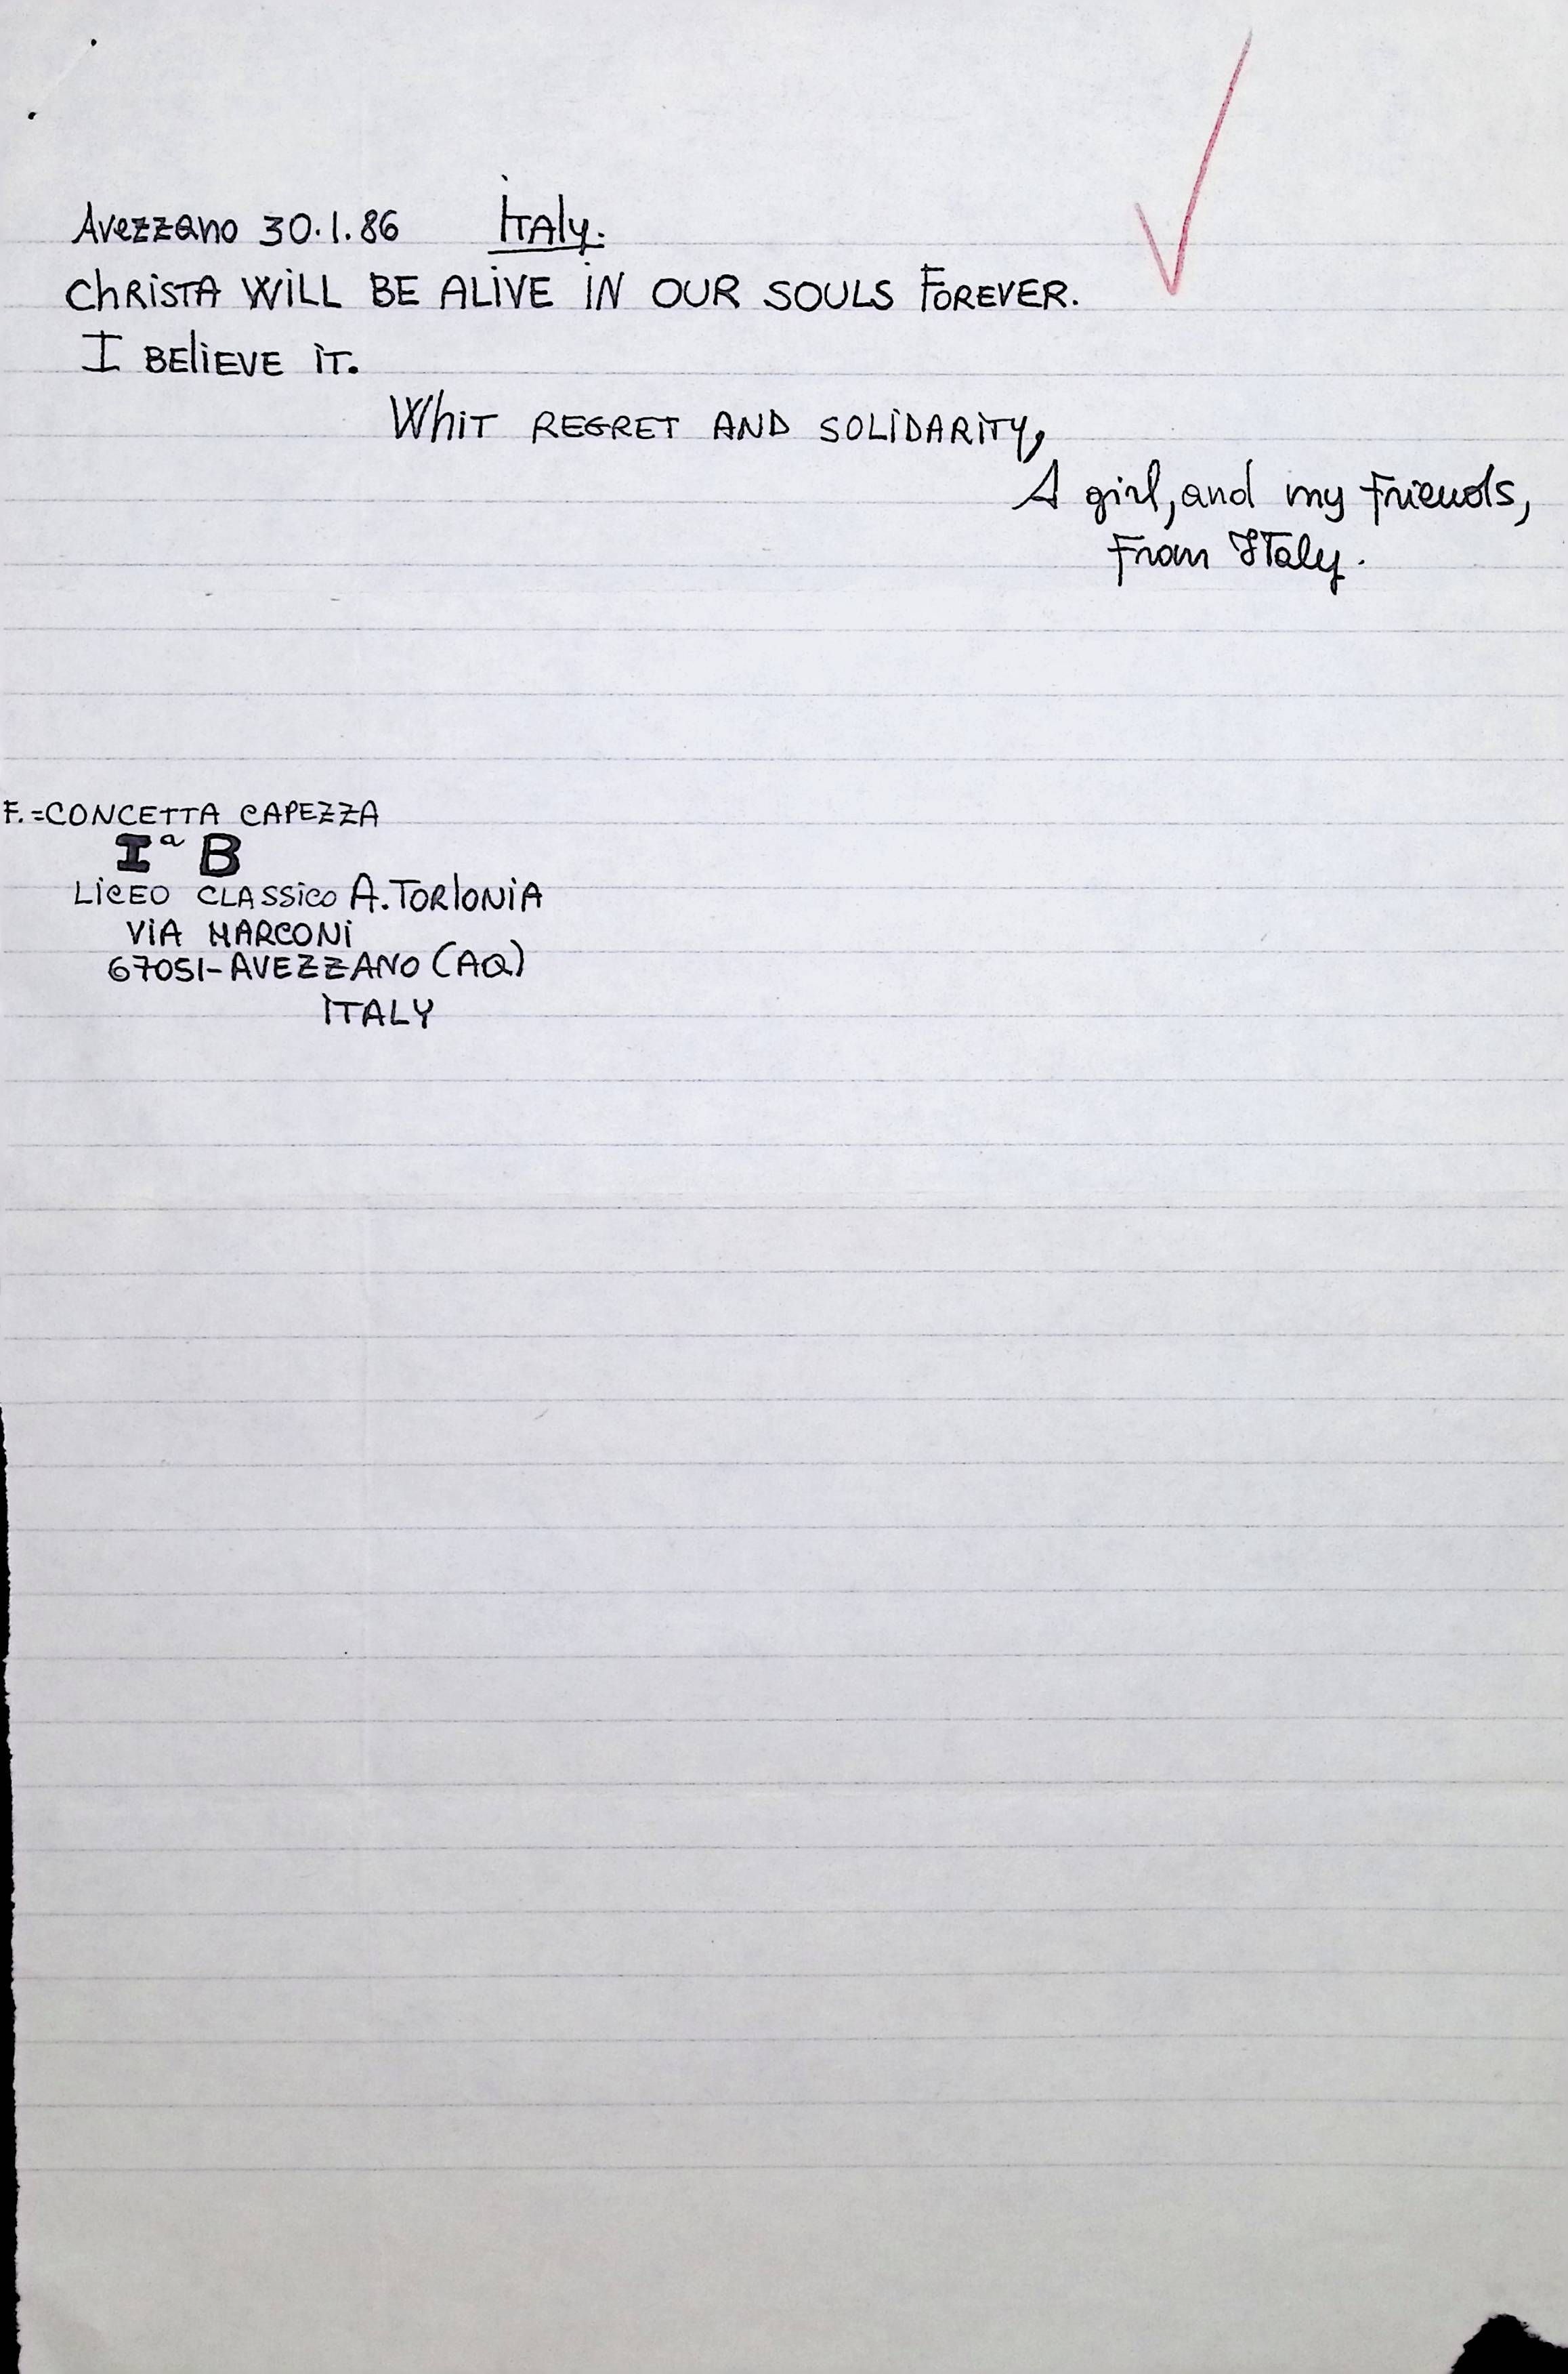 Avezzano 30.1.86 Italy.
Christa will be alive in our souls forever.
I believe it.
Whit regret and solidarity,
A girl, and my friends,
from Italy.
F.=CONCETTA CAPEZZA
Iª B
LICEO CLASSICO A. TORLONIA
VIA MARCONI
67051-AVEZZANO (AQ)
ITALY